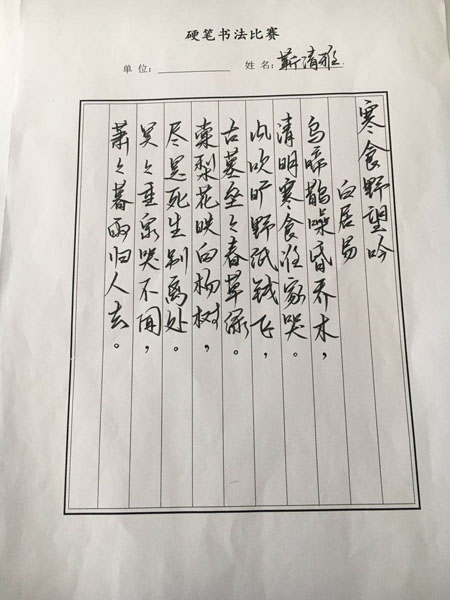 硬笔书法比赛
单位: 姓名: 靳清雅
寒食野望吟
白居易
乌啼鹊噪昏乔木,
清明寒食谁家哭。
风吹旷野纸钱飞,
古墓垒々春草绿。
棠梨花映白杨树,
尽是死生别离处。
冥々重泉哭不闻,
萧々暮雨归人去。